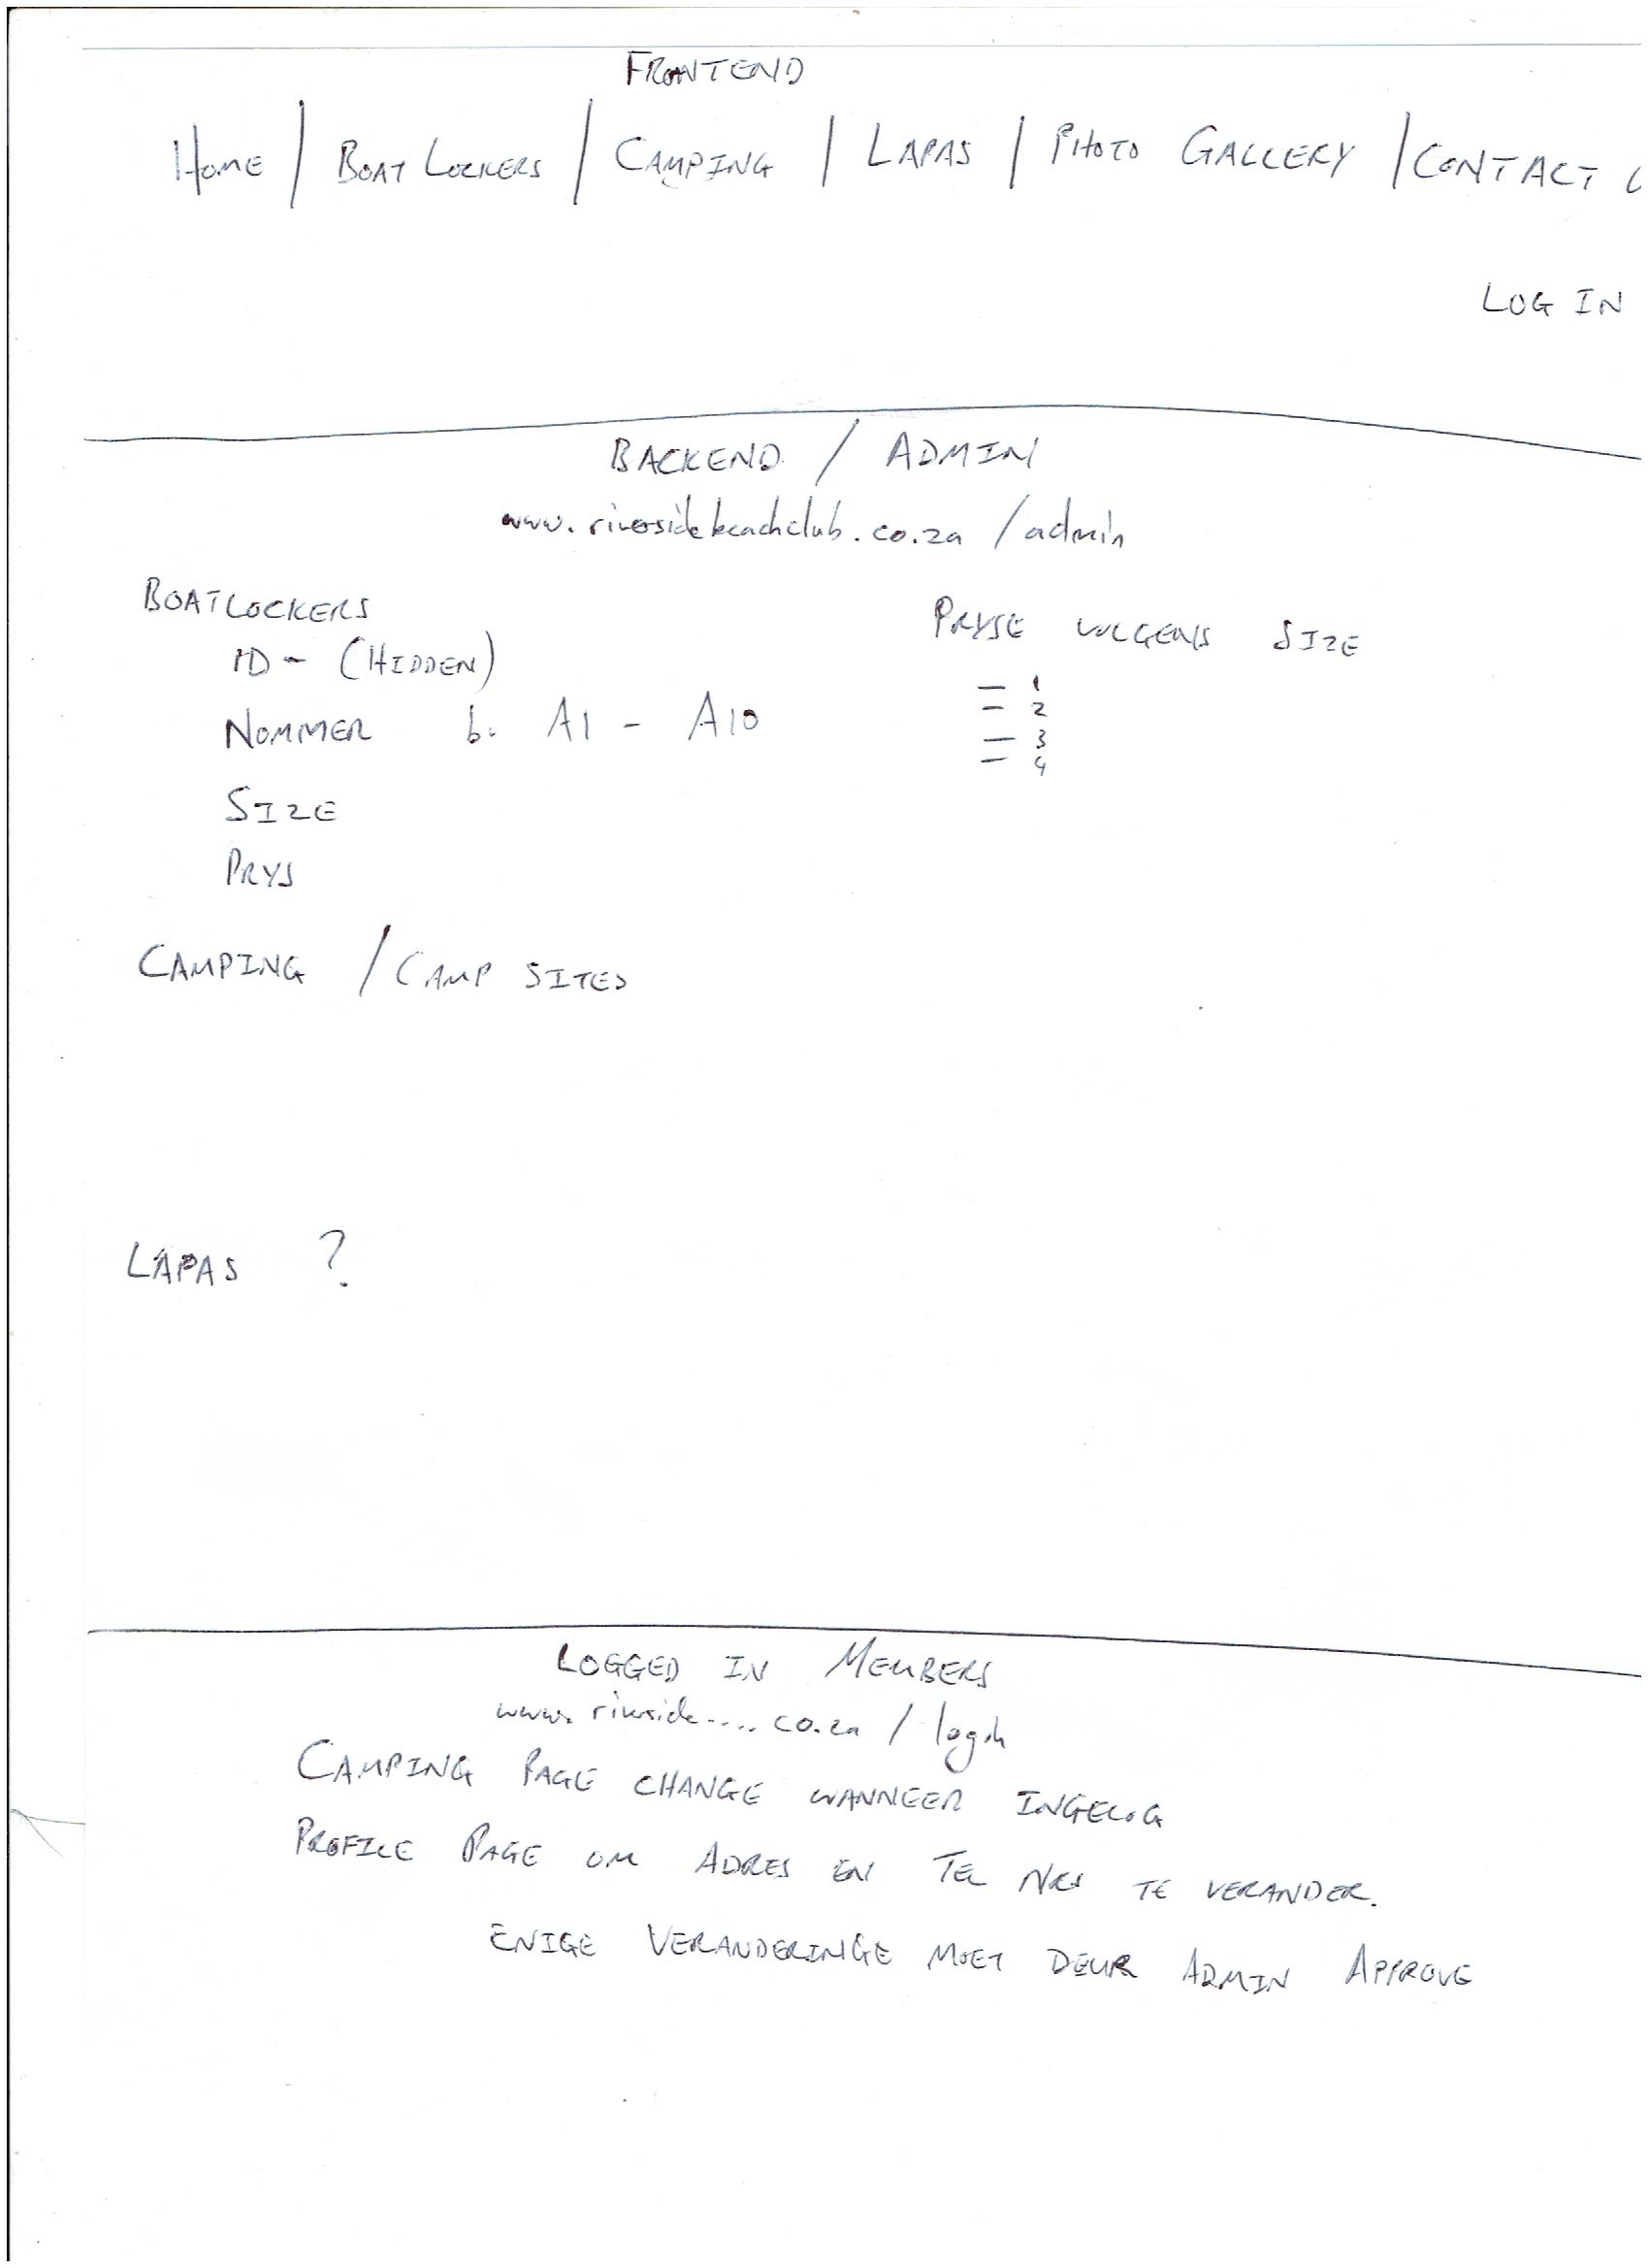 FRONTEND
HOME / BOAT LOCKERS / CAMPING / LAPAS / PHOTO GALLERY / CONTACT
LOG IN
BACKEND / ADMIN
www.riversidebeachclub.co.za /admin
BOATLOCKERS
PRYSE VOLGENS SIZE
ID - (HIDDEN)
– 1
NOMMER b. A1 - A10
– 2
– 3
– 4
SIZE
PRYS
CAMPING / CAMP SITES
LAPAS ?
LOGGED IN MEMBERS
www.riverside....co.za / login
CAMPING PAGE CHANGE WANNEER INGELOG
PROFILE PAGE OM ADRES EN TEL NRS TE VERANDER.
ENIGE VERANDERINGE MOET DEUR ADMIN APPROVE